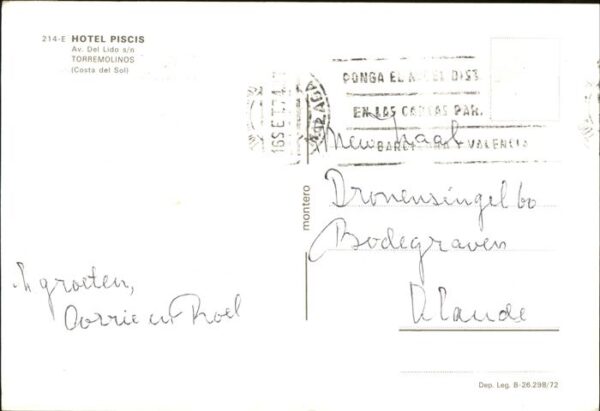 214-E HOTEL PISCIS
Av. Del Lido s/n
TORREMOLINOS
(Costa del Sol)
16 SET. 74
PONGA EL DIST.
EN LAS CARTAS PAR.
BARCELONA Y VALENCIA
montero
Mevr. Kaal
Dronensingel 60
Bodegraven
groeten,
Corrie en Roel
Dep. Leg. B-26.298/72